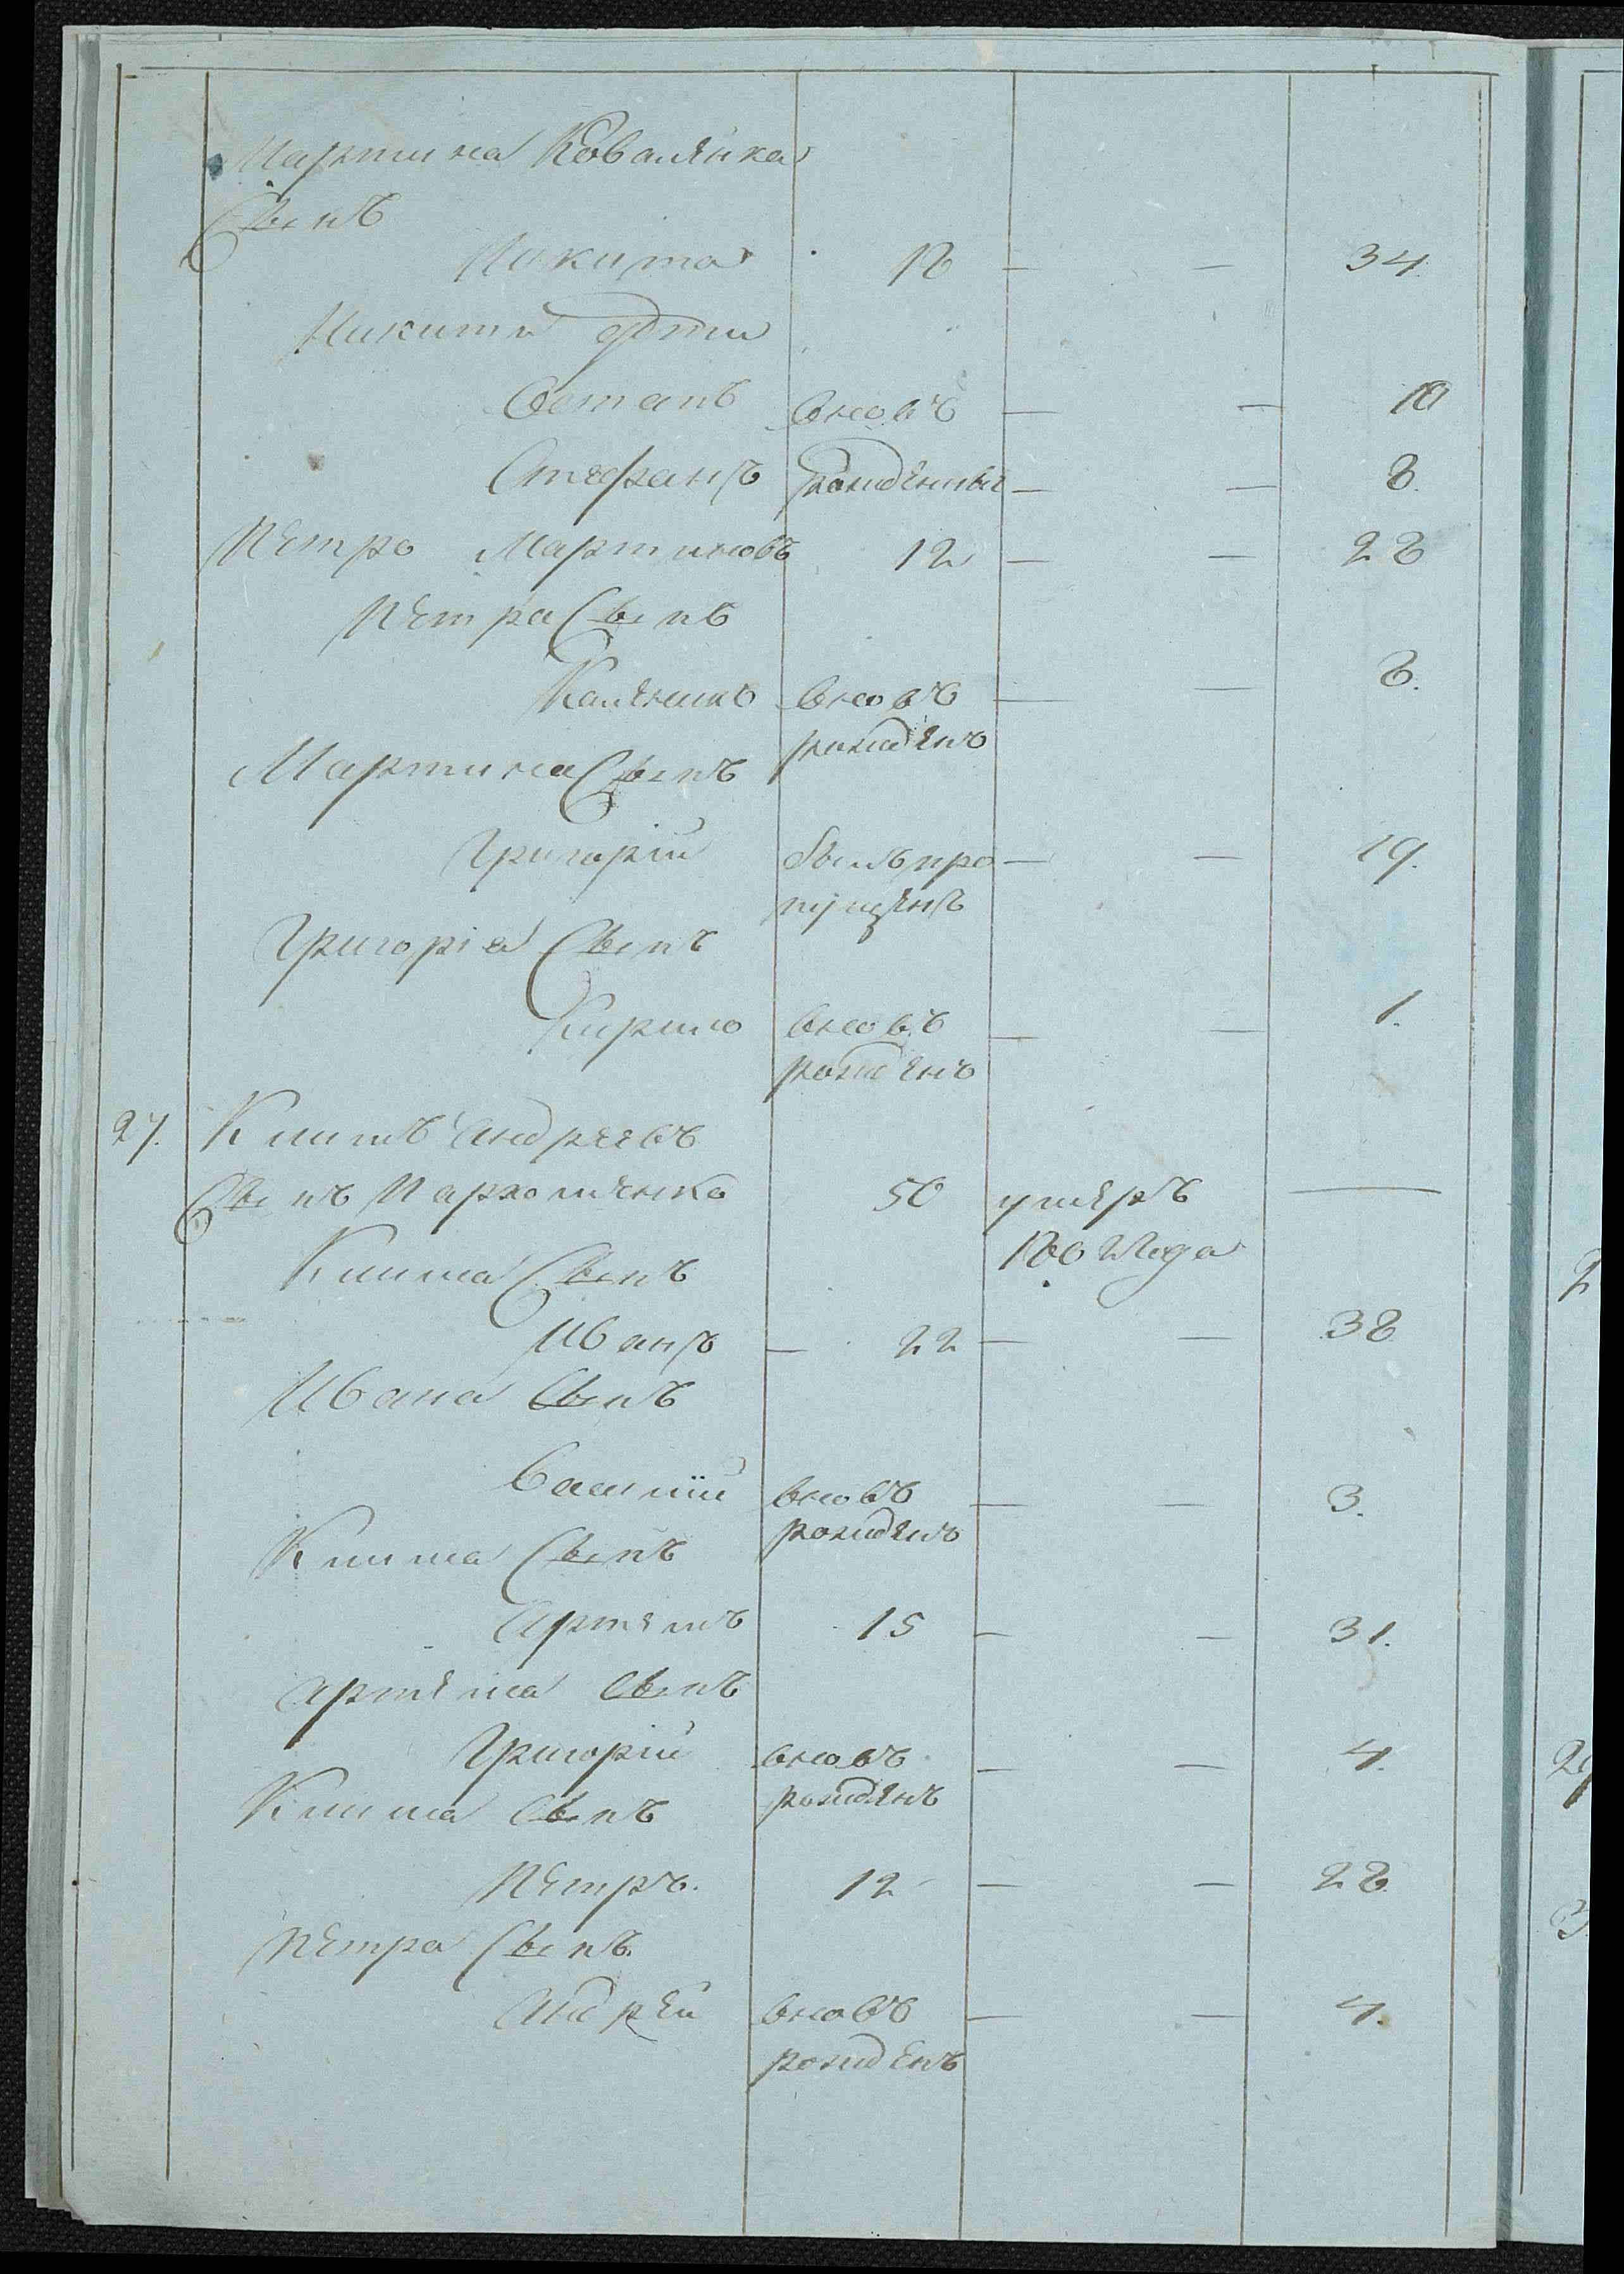 Мартина Коваленка
Сынъ
Никита 18 — — 34.
Никиты дети
Остапъ вновь — — 10
Стефанъ рожденные — — 8.
Петро Мартиновъ 12 — — 28
Петра Сынъ
вновь — — 8.
рожденъ
Мартина Сынъ
Григорій былъ про — — 19.
пущенъ
Григорія Сынъ
Кирило вновь — — 1.
рожденъ
27. Климъ Андреевъ
Сынъ Пархоменко 50 умеръ —
Клима Сынъ года
Иванъ — 22 — — 38
Ивана Сынъ
Василій вновь — — 3.
рожденъ
Клима Сынъ
Артемъ 15 — — 31.
Артема Сынъ
Григорій вновь — — 4.
рожденъ
Клима Сынъ
Петръ. 12 — — 28.
Петра Сынъ
Андрей вновь — — 4.
рожденъ